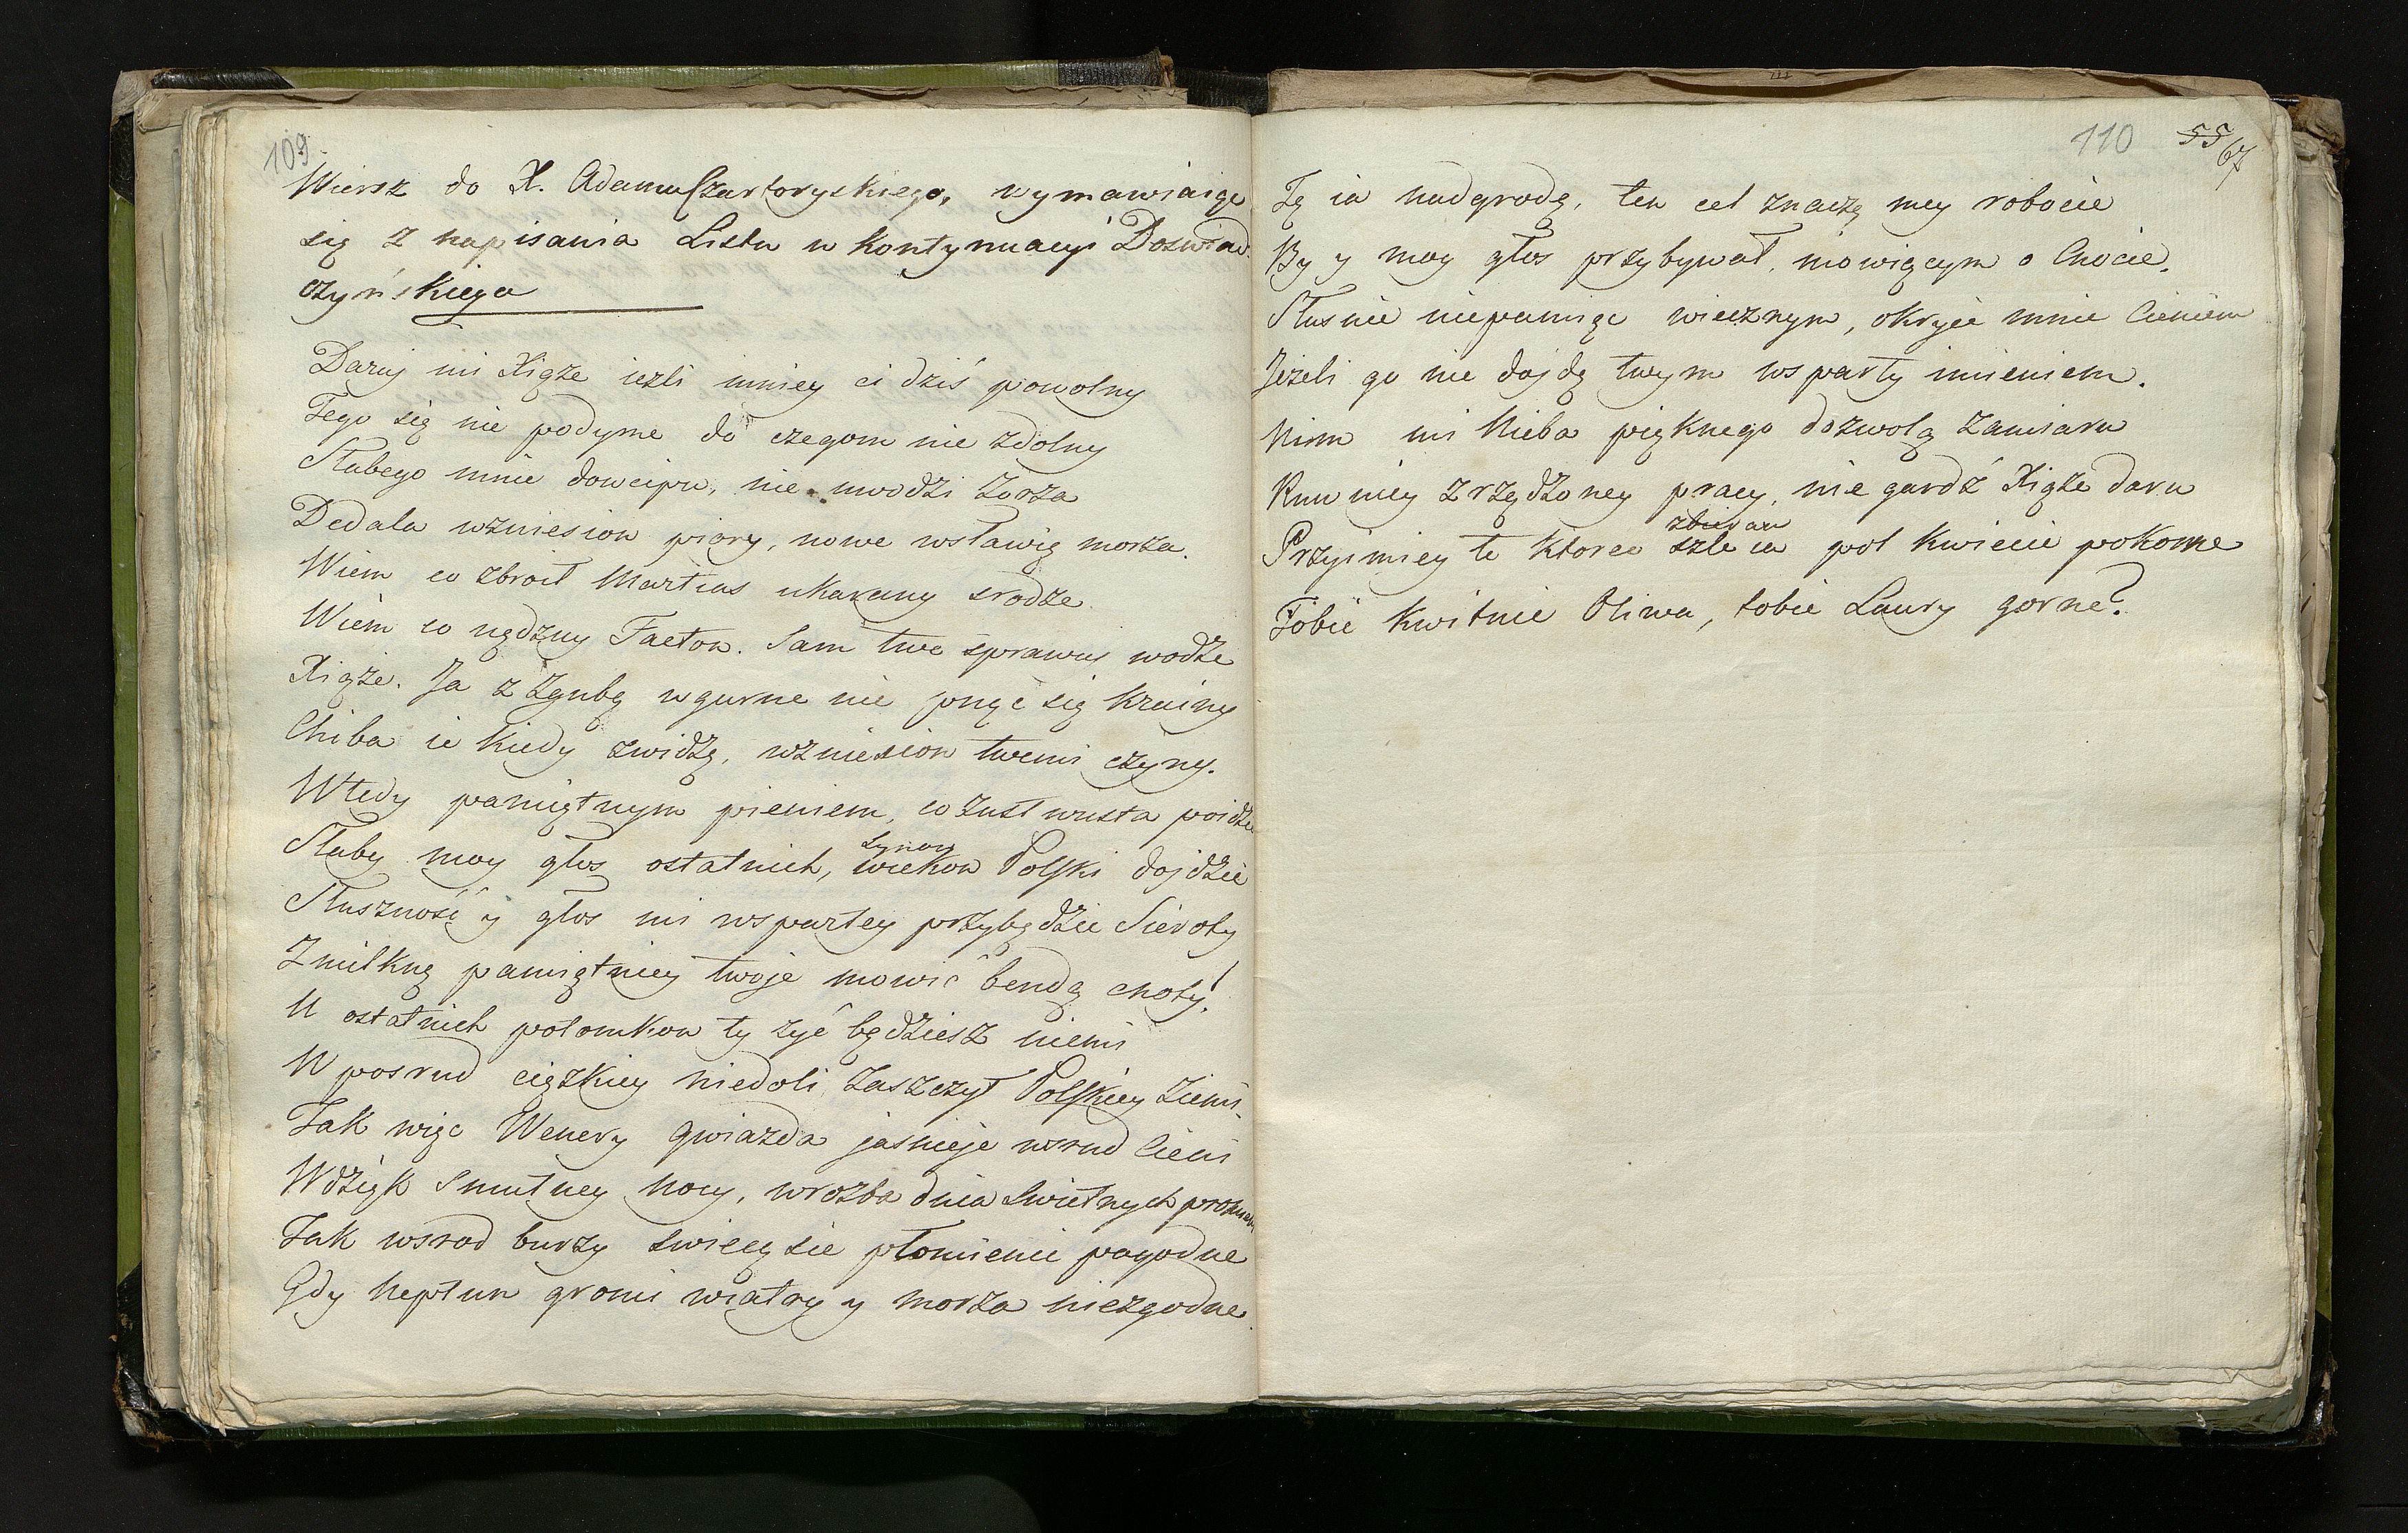 109
Wiersz do X. Adama Czartoryskiego, wymawiaiąc
się z napisania Listu w kontynuacyi Doswiad
czyńskiego
Daruj mi Xiąże iezli mniey ci dziś powolny
Tego się nie podyme do czegom nie zdolny
Słabego mnie dowcipu, nie uwodzi Zorza
Dedala wzniesion piory, nowe wsławię morza.
Wiem co zbroił Martias ukarany srodze
Wiem co nędzny Faeton. Sam twe sprawuj wodze
Xiąże. Ja z Zgubą w gurne nie pnąć się krainy
Chiba ie kiedy zwidzę, wzniesion twemi czyny.
Wtedy pamiętnym pieniem, co z ust w usta poidzie
Słaby moy głos ostatnich, synow wiekow Polski dojdzie
Słuszność y głos mi wspartey przybędzie Sieroty
Zmilknę pamiętniey twoje mowić bendą cnoty!
U ostatnich potomkow ty żyć będziesz niemi
W posrud ciężkiey niedoli Zaszczyt Polskiey Ziemi.
Tak więc Wenery gwiazda jasnieje wsrud Cieni
Wdzięk smutney Nocy, wrożba dnia swietnych promieni
Tak wsrod burzy swiecą sie płomienie pogodne
Gdy Neptun gromi wiatry y morza niezgodne
110 55 67
Tę ia nadgrodę, ten cel znaczę mey robocie
By y moy głos przybywał, mowiącym o Cnocie.
Słusnie niepamięc wiecznym, okryie mnie Cieniem
Jeżeli go nie dojdę twym wsparty imieniem.
Nim mi Nieba pięknego dozwolą Zamiaru
Ku niey zrządzoney pracy, nie gardź Xiąże daru
Przyimiey te ktore zbieram szle ia pol kwiecie pokorne
Tobie kwitnie Oliwa, tobie Laury gorne.